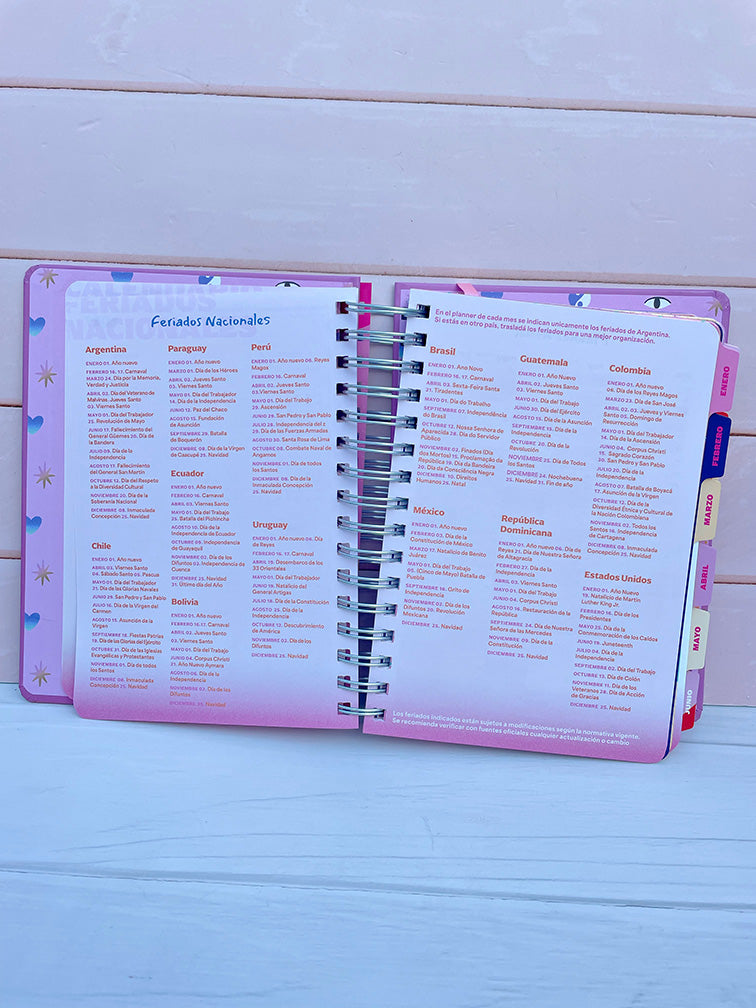 FERIADOS
NACIONALES
Feriados Nacionales
Argentina
ENERO 01. Año nuevo
FEBRERO 16. 17. Carnaval
MARZO 24. Día por la Memoria,
Verdad y Justicia
ABRIL 02. Día del Veterano de
Malvinas. Jueves Santo
03. Viernes Santo
MAYO 01. Día del Trabajador
25. Revolución de Mayo
JUNIO 17. Fallecimiento del
General Güemes 20. Día de
la Bandera
JULIO 09. Día de la
Independencia
AGOSTO 17. Fallecimiento
del General San Martín
OCTUBRE 12. Día del Respeto
a la Diversidad Cultural
NOVIEMBRE 20. Día de la
Soberanía Nacional
DICIEMBRE 08. Inmaculada
Concepción 25. Navidad
Chile
ENERO 01. Año nuevo
ABRIL 03. Viernes Santo
04. Sábado Santo 05. Pascua
MAYO 01. Día del Trabajador
21. Día de las Glorias Navales
JUNIO 29. San Pedro y San Pablo
JULIO 16. Día de la Virgen del
Carmen
AGOSTO 15. Asunción de la
Virgen
SEPTIEMBRE 18. Fiestas Patrias
19. Día de las Glorias del Ejército
OCTUBRE 31. Día de las Iglesias
Evangélicas y Protestantes
NOVIEMBRE 01. Día de todos
los Santos
DICIEMBRE 08. Inmaculada
Concepción 25. Navidad
Paraguay
ENERO 01. Año nuevo
MARZO 01. Día de los Héroes
ABRIL 02. Jueves Santo
03. Viernes Santo
MAYO 01. Día del Trabajador
14. Día de la Independencia
JUNIO 12. Paz del Chaco
AGOSTO 15. Fundación
de Asunción
SEPTIEMBRE 29. Batalla
de Boquerón
DICIEMBRE 08. Día de la Virgen
de Caacupé 25. Navidad
Ecuador
ENERO 01. Año nuevo
FEBRERO 16. Carnaval
ABRIL 03. Viernes Santo
MAYO 01. Día del Trabajo
24. Batalla del Pichincha
AGOSTO 10. Día de la
Independencia de Ecuador
OCTUBRE 09. Independencia
de Guayaquil
NOVIEMBRE 02. Día de los
Difuntos 03. Independencia
de Cuenca
DICIEMBRE 25. Navidad
31. Último día del Año
Bolivia
ENERO 01. Año nuevo
FEBRERO 16.17. Carnaval
ABRIL 02. Jueves Santo
03. Viernes Santo
MAYO 01. Día del Trabajo
JUNIO 04. Corpus Christi
21. Año Nuevo Aymara
AGOSTO 06. Día de la
Independencia
NOVIEMBRE 02. Día de los
Difuntos
DICIEMBRE 25. Navidad
Perú
ENERO 01. Año nuevo 06. Reyes
Magos
FEBRERO 16. Carnaval
ABRIL 02. Jueves Santo
03. Viernes Santo
MAYO 01. Día del Trabajo
29. Ascensión
JUNIO 29. San Pedro y San Pablo
JULIO 28. Independencia del 2
29. Día de las Fuerzas Armadas
AGOSTO 30. Santa Rosa de Lima
OCTUBRE 08. Combate Naval de
Angamos
NOVIEMBRE 01. Día de todos
los Santos
DICIEMBRE 08. Día de la
Inmaculada Concepción
25. Navidad
Uruguay
ENERO 01. Año nuevo 06. Día
de Reyes
FEBRERO 16. 17. Carnaval
ABRIL 19. Desembarco de los
33 Orientales
MAYO 01. Día del Trabajador
JUNIO 19. Natalicio del
General Artigas
JULIO 18. Día de la Constitución
AGOSTO 25. Día de la
Independencia
OCTUBRE 12. Descubrimiento
de América
NOVIEMBRE 02. Día de los
Difuntos
DICIEMBRE 25. Navidad
En el planner de cada mes se indican unicamente los feriados de Argentina.
Si estás en otro país, trasladá los feriados para una mejor organización.
Brasil
ENERO 01. Ano Novo
FEBRERO 16. 17. Carnaval
ABRIL 03. Sexta-Feira Santa
21. Tiradentes
MAYO 01. Día do Trabalho
SEPTIEMBRE 07. Independência
do Brasil
OCTUBRE 12. Nossa Senhora de
Aparecida 28. Día do Servidor
Público
NOVIEMBRE 02. Finados (Día
dos Mortos) 15. Proclamação da
República 19. Día da Bandeira
20. Día da Consciência Negra
DICIEMBRE 10. Direitos
Humanos 25. Natal
México
ENERO 01. Año nuevo
FEBRERO 03. Día de la
Constitución de México
MARZO 17. Natalicio de Benito
Juárez
MAYO 01. Día del Trabajo
05. (Cinco de Mayo) Batalla de
Puebla
SEPTIEMBRE 16. Grito de
Independencia
NOVIEMBRE 02. Día de los
Difuntos 20. Revolución
Mexicana
DICIEMBRE 25. Navidad
Guatemala
ENERO 01. Año nuevo
ABRIL 02. Jueves Santo
03. Viernes Santo
MAYO 01. Día del Trabajo
JUNIO 30. Día del Ejército
AGOSTO 15. Día de la Asunción
SEPTIEMBRE 15. Día de la
Independencia
OCTUBRE 20. Día de la
Revolución
NOVIEMBRE 01. Día de Todos
los Santos
DICIEMBRE 24. Nochebuena
25. Navidad 31. Fin de año
República
Dominicana
ENERO 01. Año nuevo 06. Día de
Reyes 21. Día de Nuestra Señora
de Altagracia
FEBRERO 27. Día de la
Independencia
ABRIL 03. Viernes Santo
MAYO 01. Día del Trabajo
JUNIO 04. Corpus Christi
AGOSTO 16. Restauración de la
República
SEPTIEMBRE 24. Día de Nuestra
Señora de las Mercedes
NOVIEMBRE 09. Día de la
Constitución
DICIEMBRE 25. Navidad
Colombia
ENERO 01. Año nuevo
06. Día de los Reyes Magos
MARZO 23. Día de San José
ABRIL 02. 03. Jueves y Viernes
Santo 05. Domingo de
Resurrección
MAYO 01. Día del Trabajador
14. Día de la Ascensión
JUNIO 04. Corpus Christi
15. Sagrado Corazón
20. San Pedro y San Pablo
JULIO 20. Día de la
Independencia
AGOSTO 07. Batalla de Boyacá
17. Asunción de la Virgen
OCTUBRE 12. Día de la
Diversidad Étnica y Cultural de
la Nación Colombiana
NOVIEMBRE 02. Todos los
Santos 16. Independencia
de Cartagena
DICIEMBRE 08. Inmaculada
Concepción 25. Navidad
Estados Unidos
ENERO 01. Año Nuevo
19. Natalicio de Martin
Luther King Jr.
FEBRERO 16. Día de los
Presidentes
MAYO 25. Día de la
Conmemoración de los Caídos
JUNIO 19. Juneteenth
JULIO 04. Día de la
Independencia
SEPTIEMBRE 02. Día del Trabajo
OCTUBRE 12. Día de Colón
NOVIEMBRE 11. Día de los
Veteranos 28. Día de Acción
de Gracias
DICIEMBRE 25. Navidad
Los feriados indicados están sujetos a modificaciones según la normativa vigente.
Se recomienda verificar con fuentes oficiales cualquier actualización o cambio
ENERO
FEBRERO
MARZO
ABRIL
MAYO
JUNIO